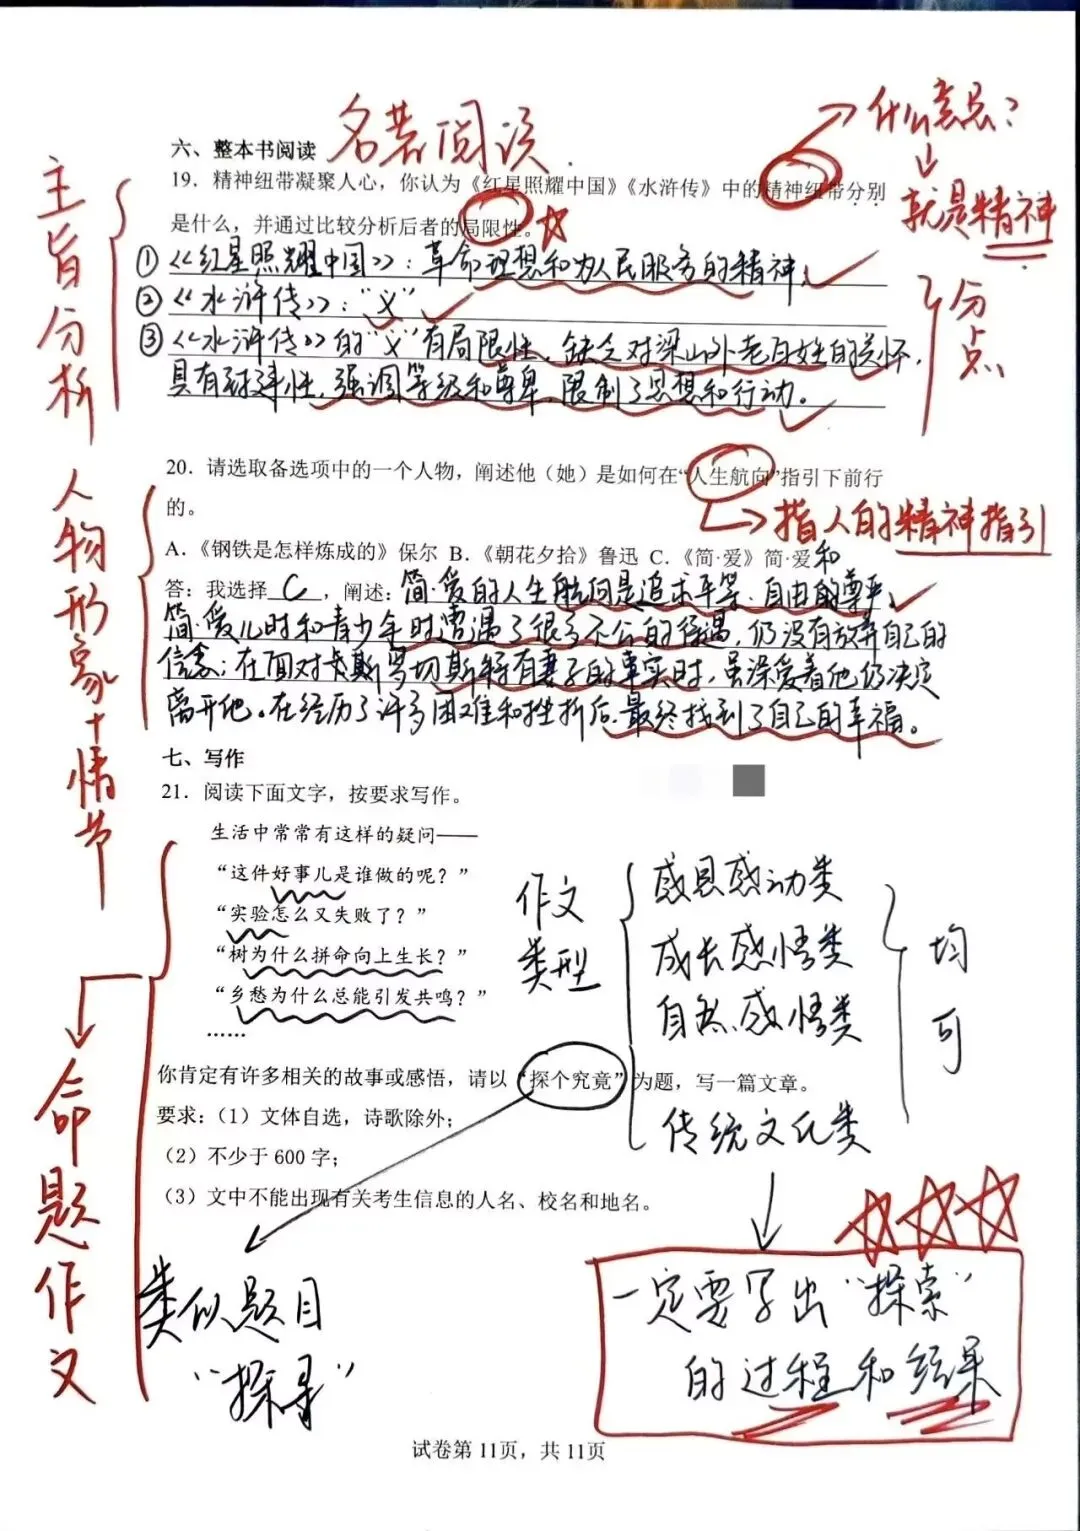 名著阅读
六、整本书阅读
什么意思?
就是精神
19．精神纽带凝聚人心，你认为《红星照耀中国》《水浒传》中的精神纽带分别
是什么，并通过比较分析后者的局限性。
主旨分析
① 《红星照耀中国》：革命理想和为人民服务的精神；
② 《水浒传》："义"
③ 《水浒传》的"义"有局限性，缺乏对梁山外老百姓的关怀，
具有封建性，强调等级和尊卑，限制了思想和行动。
分点
20．请选取备选项中的一个人物，阐述他（她）是如何在"人生航向"指引下前行
的。
指人的精神指引
人物形象+情节
A．《钢铁是怎样炼成的》保尔 B．《朝花夕拾》鲁迅 C．《简·爱》简·爱
答：我选择 C ，阐述：简·爱的人生航向是追求平等、自由和的尊严，
简·爱儿时和青少年时遭遇了很多不公的待遇，仍没有放弃自己的
信念；在面对罗切斯特有妻子的事实时，虽深爱着他仍决定
离开他。在经历了许多困难和挫折后，最终找到了自己的幸福。
七、写作
21．阅读下面文字，按要求写作。
生活中常常有这样的疑问——
"这件好事儿是谁做的呢？"
"实验怎么又失败了？"
"树为什么拼命向上生长？"
"乡愁为什么总能引发共鸣？"
……
作文类型
感恩感动类
成长感悟类
自然感悟类
传统文化类
均可
你肯定有许多相关的故事或感悟，请以"探个究竟"为题，写一篇文章。
要求：（1）文体自选，诗歌除外；
（2）不少于 600 字；
（3）文中不能出现有关考生信息的人名、校名和地名。
命题作文
类似题目
"探寻"
一定要写出"探索"
的过程和结果
试卷第 11页，共 11页